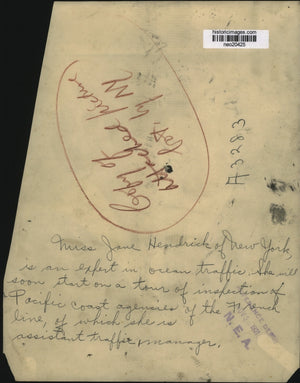 IMAGESTOCKHOUSE
neo20425
Copy of
attached picture
by NY
A3283
Miss Jane Hendrick of New York,
is an expert in ocean traffic. She will
soon start on a tour of inspection of
Pacific coast agencies of the French
line, of which she is
assistant traffic manager.
N.E.A.